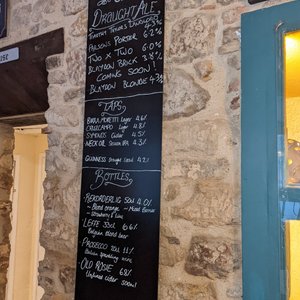 DRAUGHT ALE
PARSONS PORTER 6.2%
TWO X TWO 6.0%
BLAYDON BRICK 3.8%
COMING SOON!
BLAYDON BLONDE 4.3%
TAPS
BIRRA MORETTI Lager 4.6%
CRUZCAMPO Lager 4.8%
SYMONDS Cider 4.5%
NECK OIL Session IPA 4.3%
GUINNESS Draught Stout 4.2%
BOTTLES
REKORDERLIG 500ml 4.0%
- Blood orange - Mixed Berries
- Strawberry & Lime
LEFFE 330ml 6.6%
Belgian blond beer
PROSECCO 20cl 11%
Italian sparkling wine
OLD ROSIE 6.8%